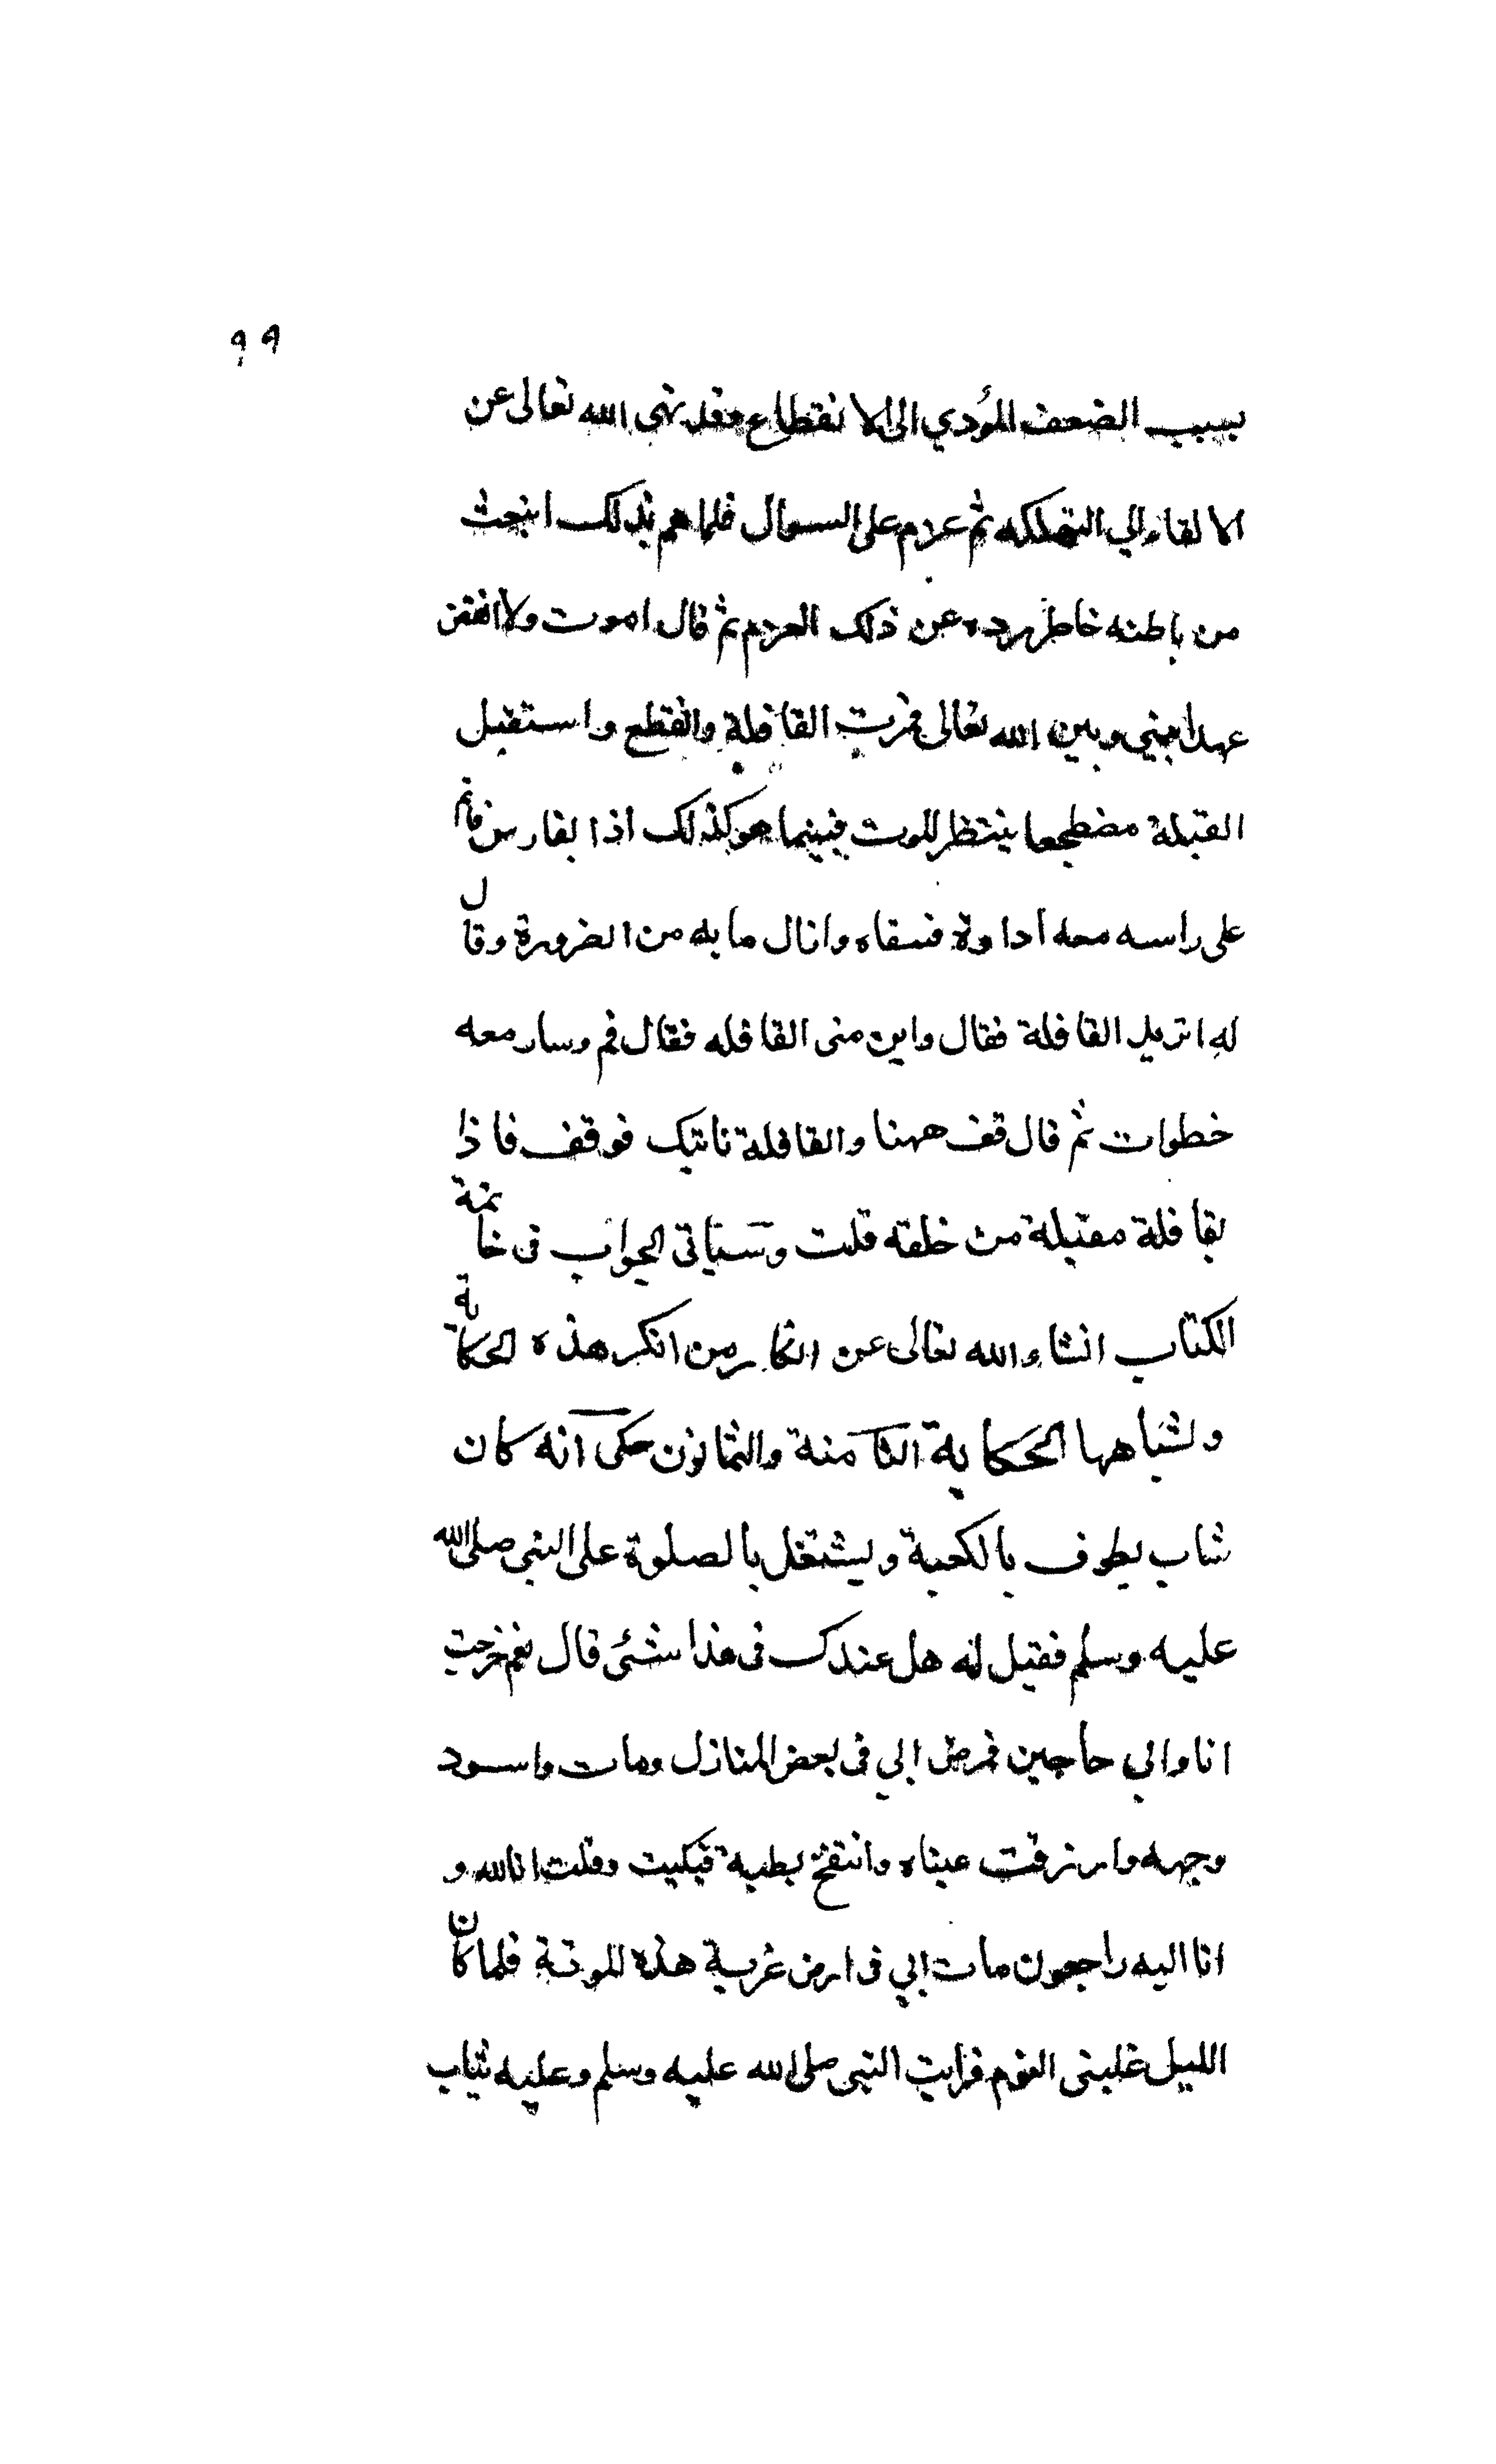 ٩٩
بسبب الضعف المؤدي الى الانقطاع وقد نهى الله تعالى عن
الالقاء الي التهلكه ثم عزم على السوال فلما هم بذلك انبعث
من باطنه خاطر رده عن ذلك العزم ثم قال اموت ولا انقض
عهدا بيني وبين الله تعالى فمرت القافلة وانقطع واستقبل
القبلة مضطجعا ينتظر الموت فبينما هو كذلك اذا بفارس قائم
على راسه معه اداوة فسقاه وازال ما به من الضرورة وقال
له اتريد القافلة فقال واين منى القافله فقال قم وسار معه
خطوات ثم قال قف ههنا والقافلة تاتيك فوقف فاذا
بقافلة مقبلة من خلفه قلت وسياتى الجواب فى خاتمة
الكتاب انشاء الله تعالى عن انكار من انكر هذه الحكاية
ولشباهها الحكاية الثامنة والثمانون حكى انه كان
شاب يطوف بالكعبة ويشتغل بالصلوة على النبى صلى الله
عليه وسلم فقيل له هل عندك فى هذا شئى قال نعم خرجت
انا وابي حاجين فمرض ابي فى بعض المنازل ومات واسود
وجهه وازرقت عيناه وانتفخ بطنه فبكيت وقلت انا لله و
انا اليه راجعون مات ابي فى ارض غربة هذه الموتة فلما كان
الليل غلبنى النوم فرايت النبى صلى الله عليه وسلم وعليه ثياب